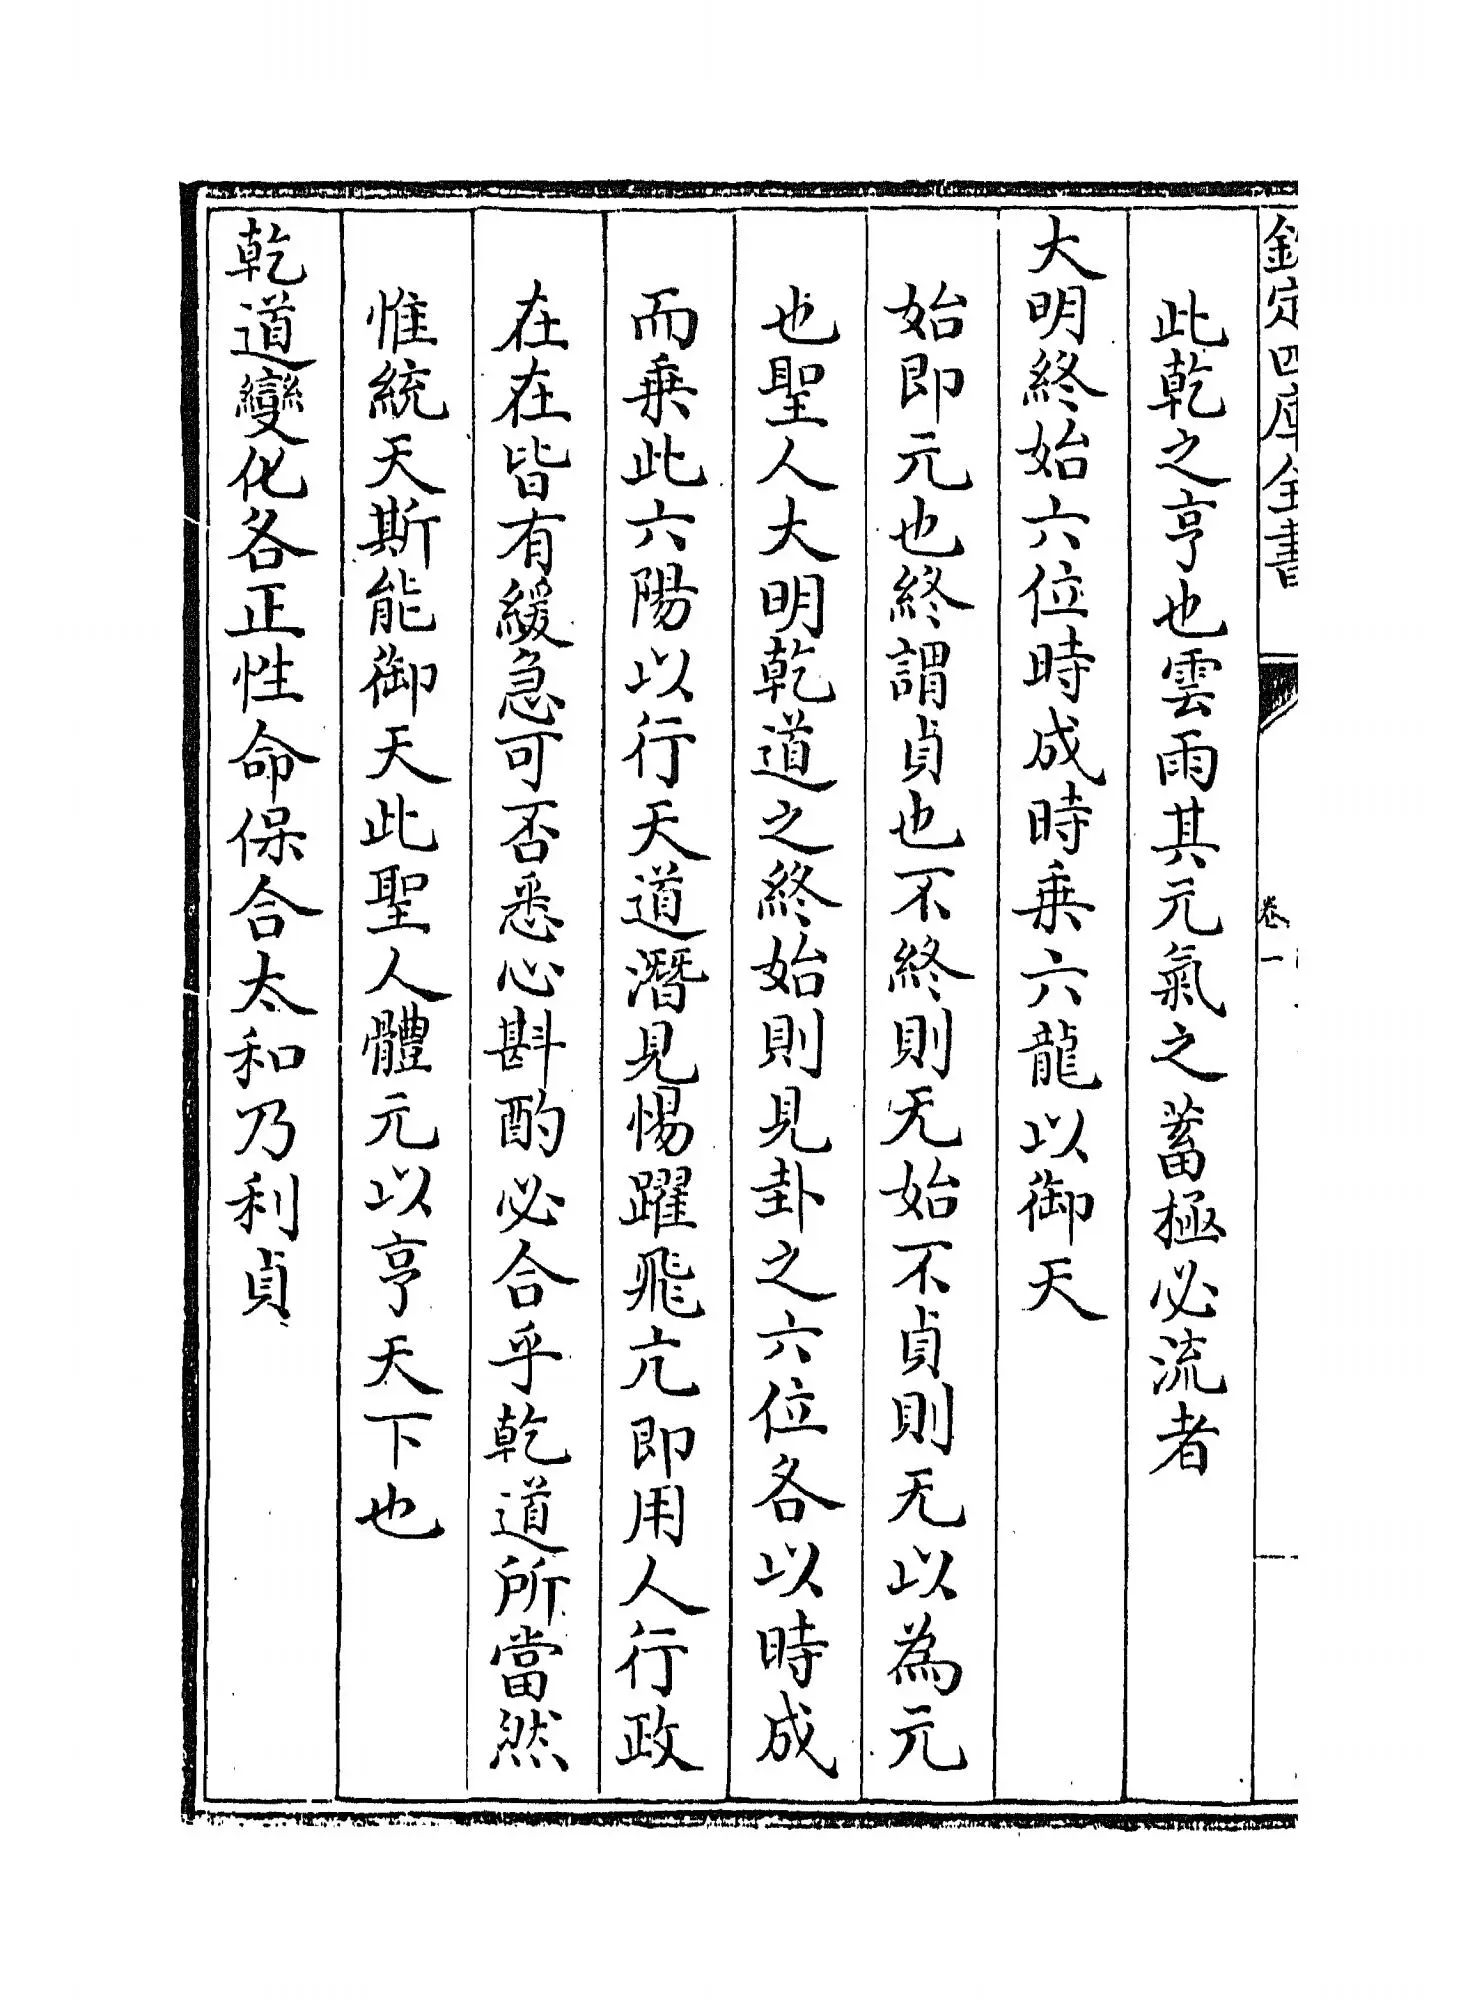 欽定四庫全書
卷一
此乾之亨也雲雨其元氣之蓄極必流者
大明終始六位時成時乗六龍以御天
始即元也終謂貞也不終則无始不貞則无以為元
也聖人大明乾道之終始則見卦之六位各以時成
而乗此六陽以行天道潛見惕躍飛亢即用人行政
在在皆有緩急可否悉心斟酌必合乎乾道所當然
惟統天斯能御天此聖人體元以亨天下也
乾道變化各正性命保合太和乃利貞